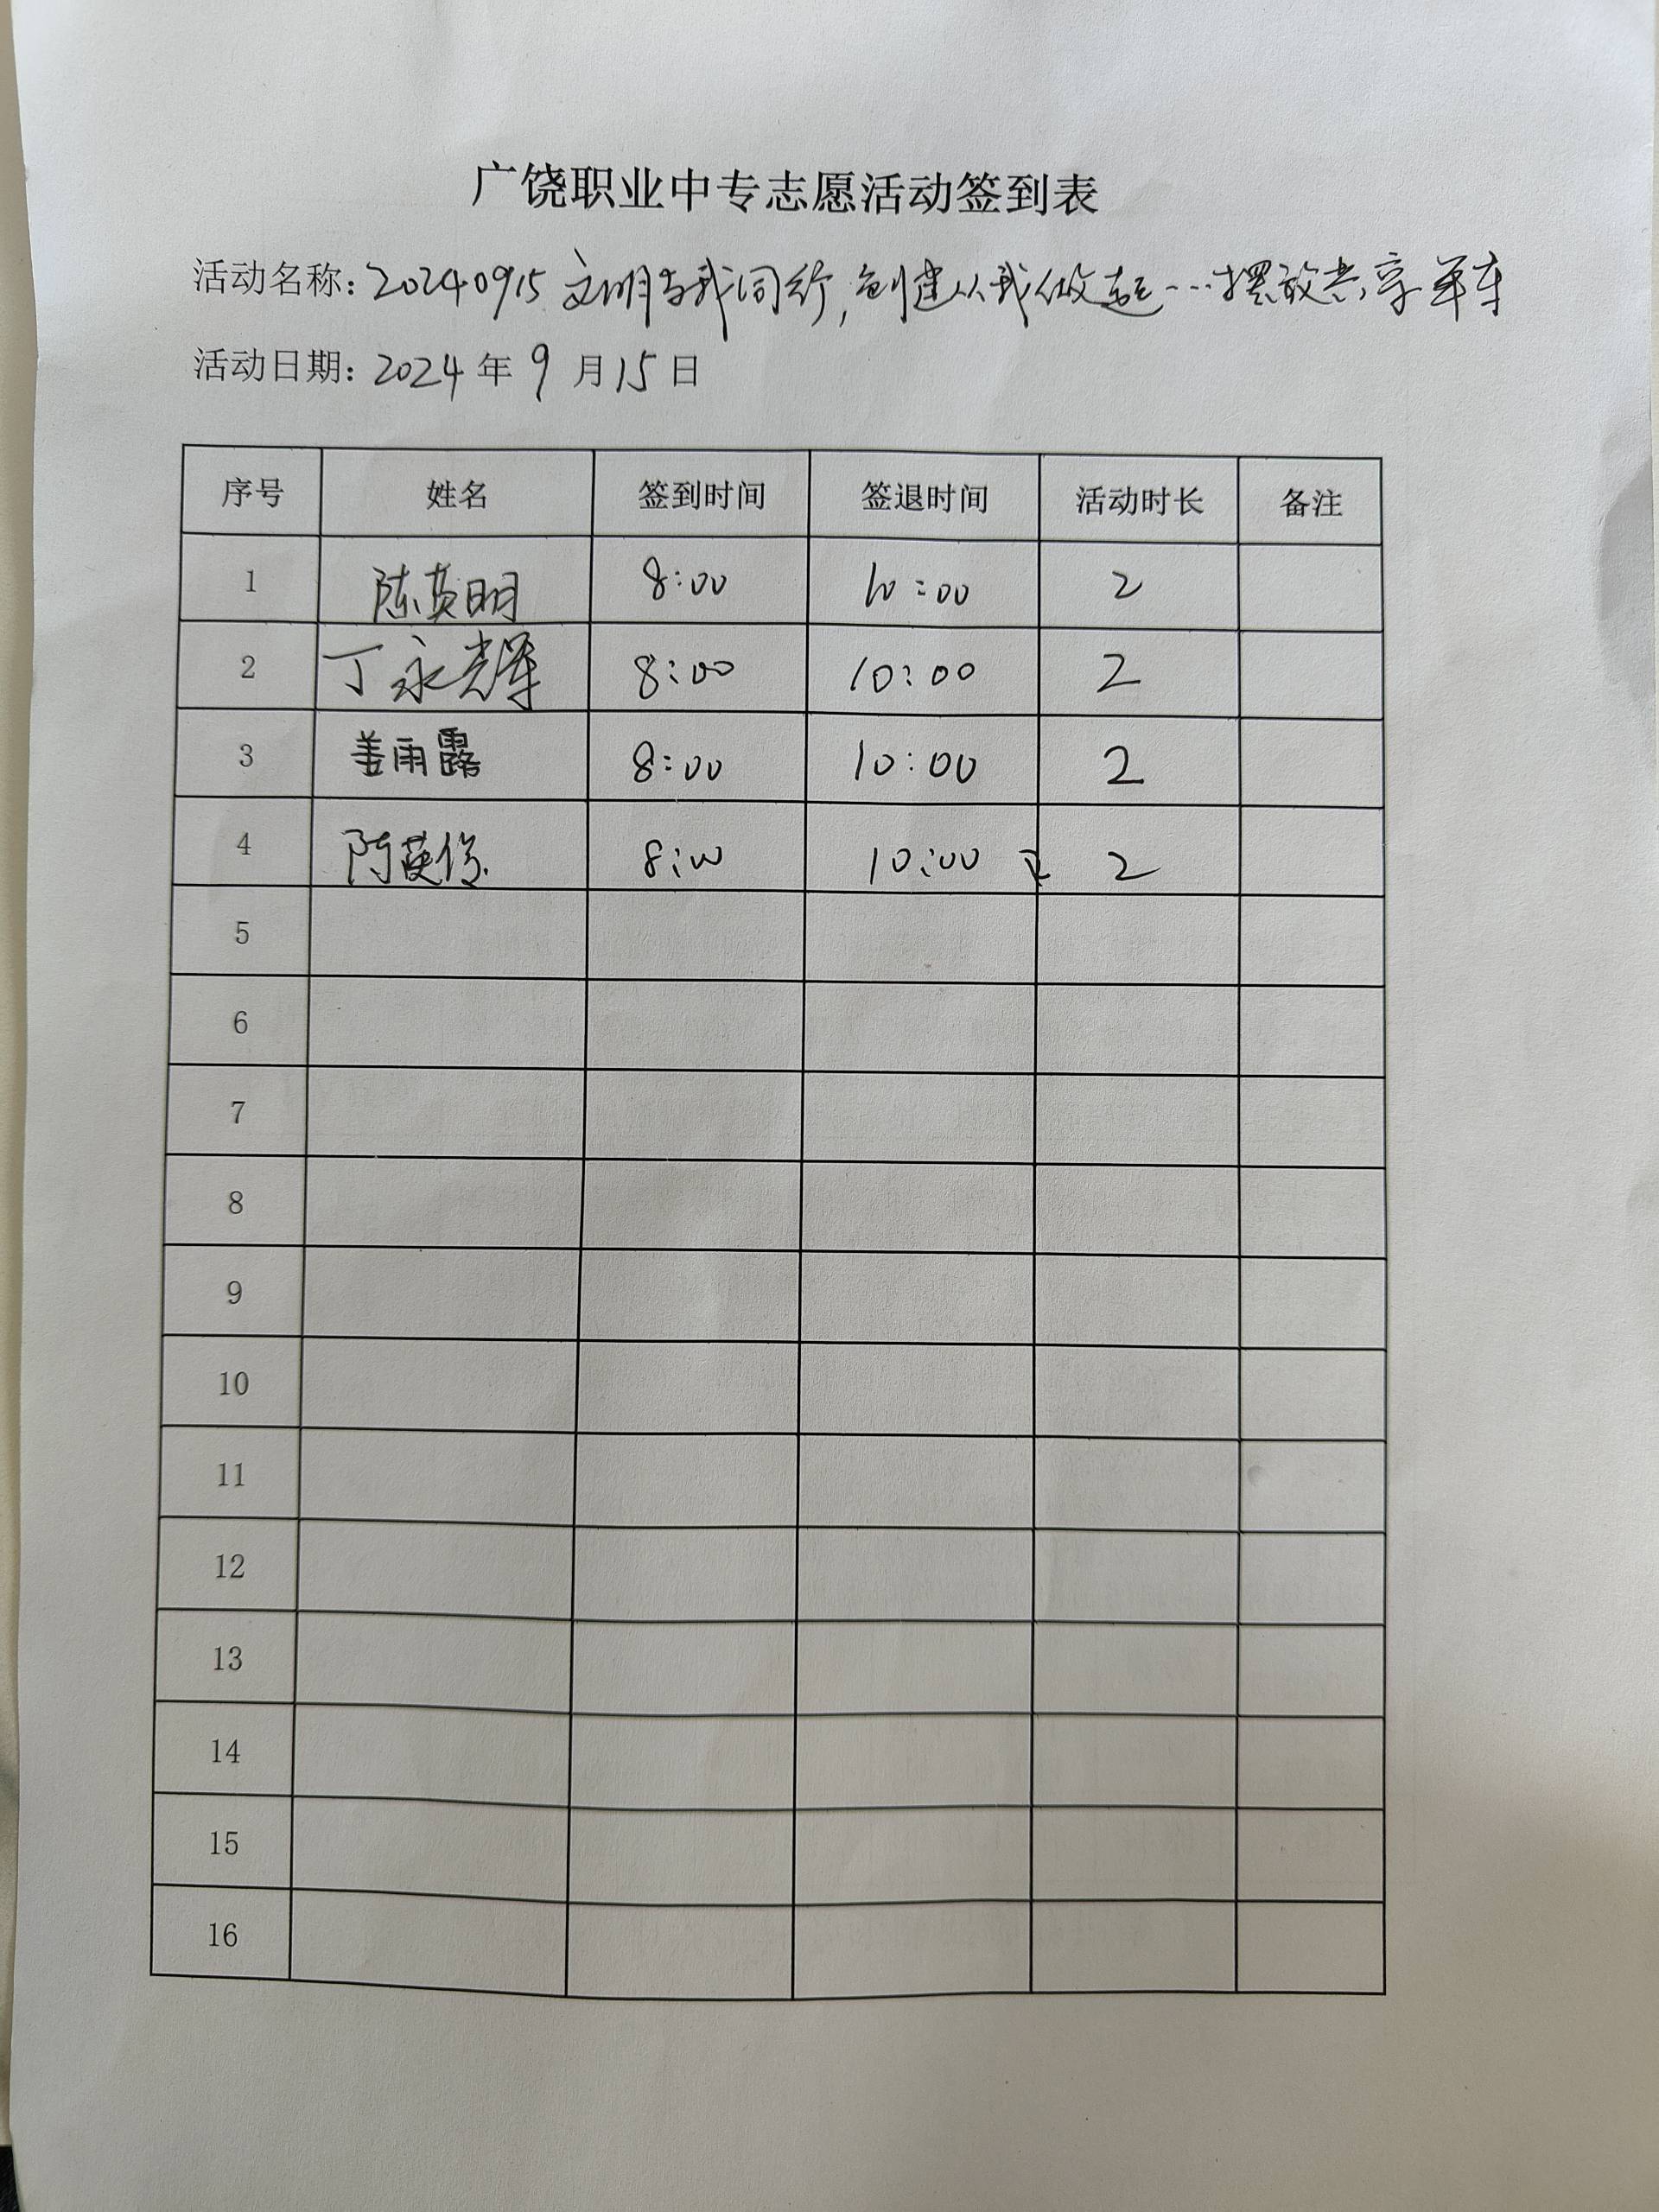 广饶职业中专志愿活动签到表
活动名称：20240915 文明与我同行，创建从我做起---摆放共享单车
活动日期：2024 年 9 月 15 日
序号 姓名 签到时间 签退时间 活动时长 备注
1 陈英明 8:00 10:00 2
2 丁永辉 8:00 10:00 2
3 姜雨露 8:00 10:00 2
4 8:00 10:00 2
5
6
7
8
9
10
11
12
13
14
15
16